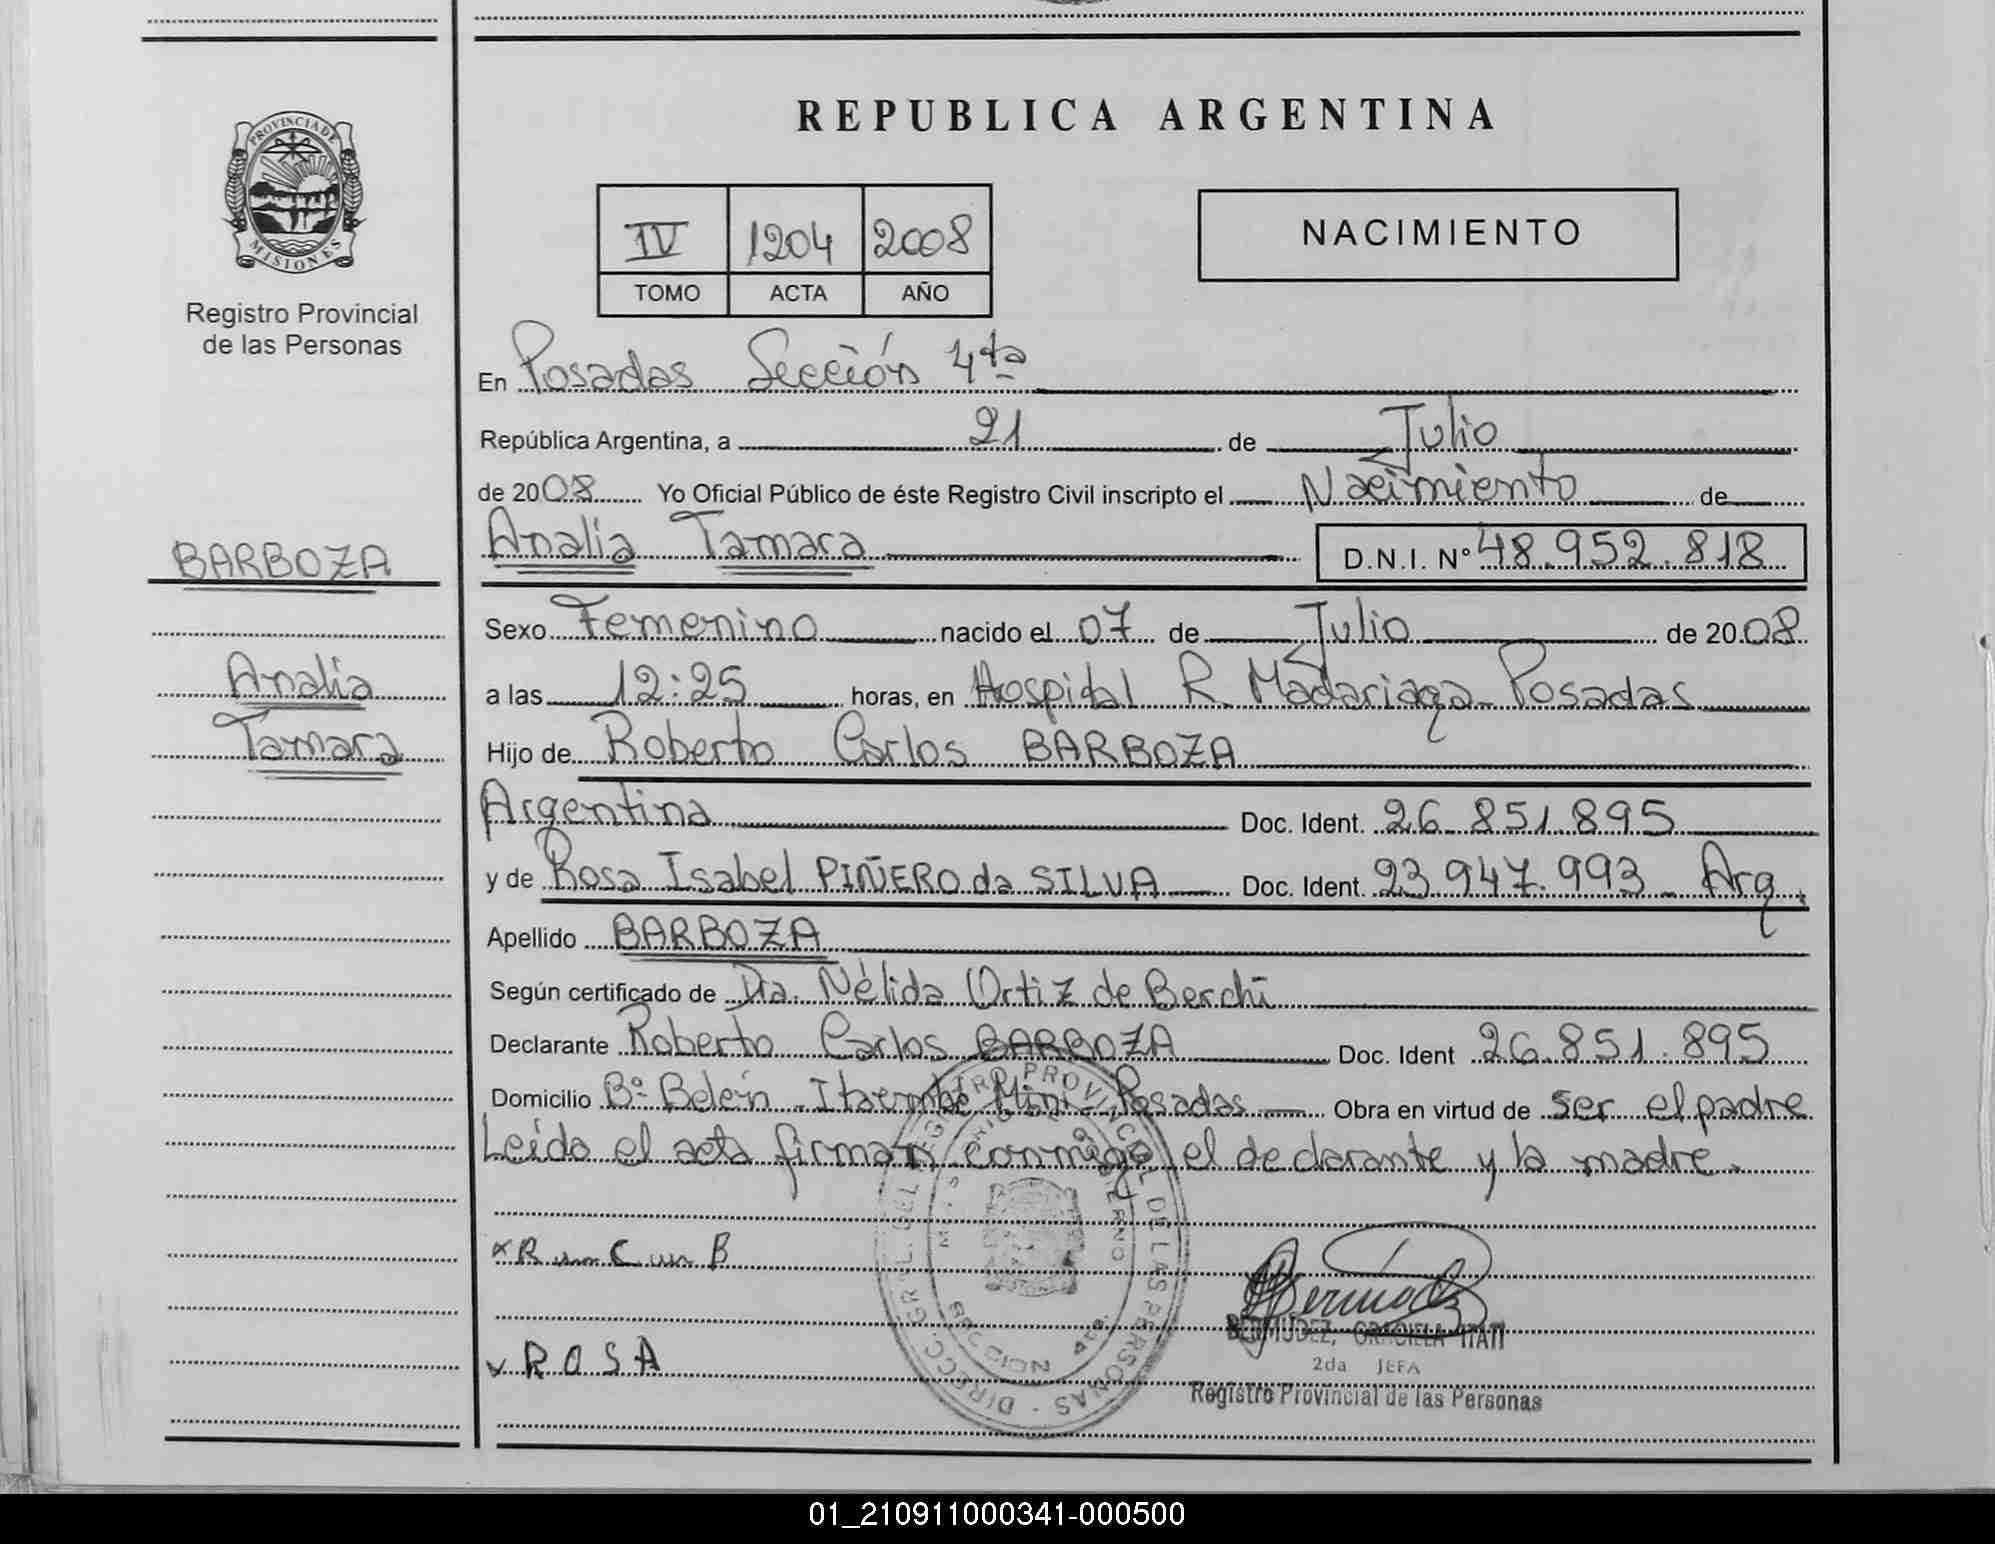 PROVINCIA DE
MISIONES
Registro Provincial
de las Personas
BARBOZA
Analia
Tamara
REPUBLICA ARGENTINA
IV 1204 2008
TOMO ACTA AÑO
NACIMIENTO
En Posadas Sección 4ta
República Argentina, a 21 de Julio
de 2008 Yo Oficial Público de éste Registro Civil inscripto el Nacimiento de
Analia Tamara D.N.I. Nº 48.952.818
Sexo Femenino nacido el 07 de Julio de 2008
a las 12:25 horas, en Hospital R. Madariaga - Posadas
Hijo de Roberto Carlos BARBOZA
Argentina Doc. Ident. 26.851.895
y de Rosa Isabel PIÑERO da SILVA Doc. Ident. 23.947.993 - Arg.
Apellido BARBOZA
Según certificado de Dra. Nélida Ortiz de Berchi
Declarante Roberto Carlos BARBOZA Doc. Ident 26.851.895
Domicilio Bº Belén - Itaembé Mini - Posadas Obra en virtud de ser el padre
Leida el acta firman conmigo el declarante y la madre.
DIRECC. GRAL. DEL REGISTRO PROVINCIAL DE LAS PERSONAS
x R C B
BERMUDEZ, GRACIELA ITATI
2da JEFA
Registro Provincial de las Personas
x ROSA
01_210911000341-000500